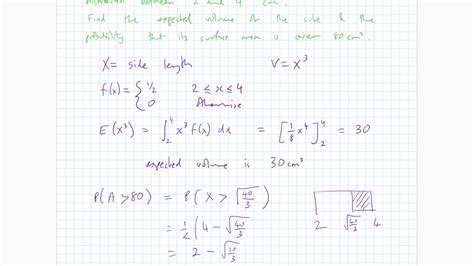 between 2 and 4 cm.
Find the expected volume of the cube & the
probability that its surface area is over 80 cm².
X = side length V = X³
f(x) = { 1/2 2 ≤ x ≤ 4
0 Otherwise
E(X³) = ∫₂⁴ x³ f(x) dx = [1/8 x⁴]₂⁴ = 30
expected volume is 30 cm³
P(A > 80) = P(X > √(40/3)
2 √(40/3) 4
= 1/2 (4 - √(40/3)
= 2 - √(10/3)